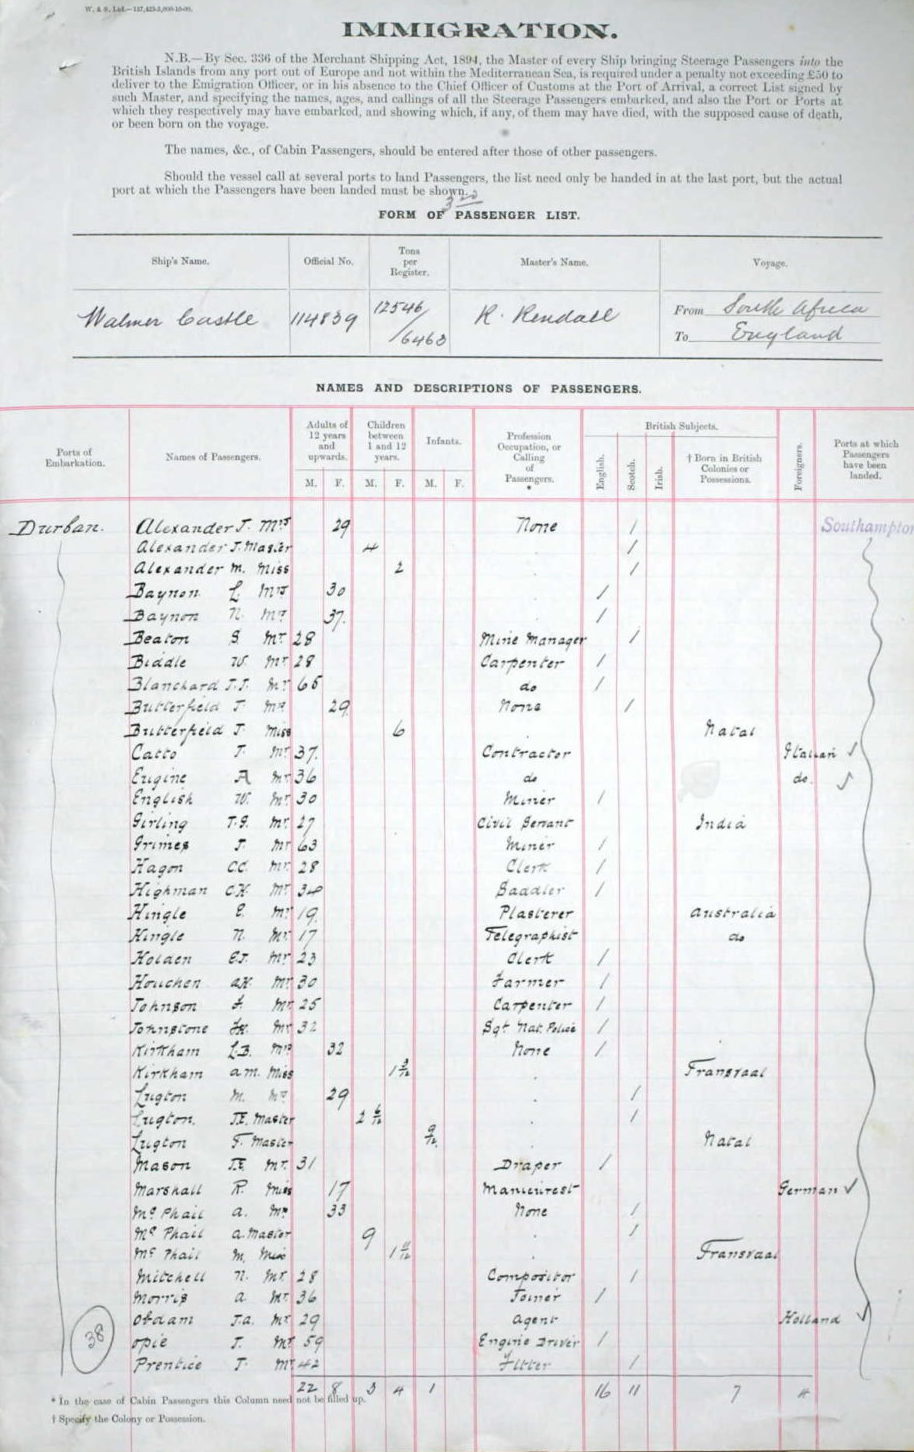 W. & S. Ltd.
IMMIGRATION.
N.B.—By Sec. 336 of the Merchant Shipping Act, 1894, the Master of every Ship bringing Steerage Passengers into the
British Islands from any port out of Europe and not within the Mediterranean Sea, is required under a penalty not exceeding £50 to
deliver to the Emigration Officer, or in his absence to the Chief Officer of Customs at the Port of Arrival, a correct List signed by
such Master, and specifying the names, ages, and callings of all the Steerage Passengers embarked, and also the Port or Ports at
which they respectively may have embarked, and showing which, if any, of them may have died, with the supposed cause of death,
or been born on the voyage.
The names, &c., of Cabin Passengers, should be entered after those of other passengers.
Should the vessel call at several ports to land Passengers, the list need only be handed in at the last port, but the actual
port at which the Passengers have been landed must be shown.
FORM OF PASSENGER LIST.
Ship's Name. Official No. Tons per Register. Master's Name. Voyage.
Walmer Castle 114839 12546/6463 R. Rendall From South Africa
To England
NAMES AND DESCRIPTIONS OF PASSENGERS.
Ports of Embarkation. Names of Passengers. Adults of 12 years and upwards. Children between 1 and 12 years. Infants. Profession Occupation, or Calling of Passengers. * British Subjects. Foreigners. Ports at which Passengers have been landed.
M. F. M. F. M. F. English. Scotch. Irish. † Born in British Colonies or Possessions.
Durban. Alexander J. Mrs 29 None / Southampton
Alexander J. Master 4 . /
Alexander M. Miss 2 . /
Baynon L Mrs 30 . /
Baynon N. 37. . /
Beaton S Mr 28 Mine Manager /
Biddle W. Mr 28 Carpenter /
Blanchard J.J. Mr 65 do /
Butterfield J 29 None /
Butterfield J Miss 6 . Natal
Catto J. Mr 37. Contractor Italian ✓
Eugine A Mr 36 do do. ✓
English W. Mr 30 Miner /
Girling T.G. Mr 27 Civil Servant India
Grimes J. Mr 63 Miner /
Hagon C.C. Mr 28 Clerk /
Highman C.H. Mr 34 Saddler /
Hingle E. Mr 19. Plasterer Australia
Hingle N. Mr 17 Telegraphist do
Holden E.J. Mr 23 Clerk /
Houchen A.H. Mr 30 Farmer /
Johnson F. Mr 25 Carpenter /
Johnstone Mr 32 Sgt Nat. Police /
Kirkham L.B. Mrs 32 None /
Kirkham A.M. Miss 1 . Transvaal
Lugton M. 29 . /
Lugton. J.E. Master 2 6/12 . /
Lugton F. Master 9/12 . Natal
Mason J.E. Mr. 31 Draper /
Marshall R. Miss 17 Manicurest German ✓
Mc Phail A. 33 None /
Mc Phail A. Master 9 . /
Mc Phail M. Miss 1 11/12 . Transvaal
Mitchell N. Mr 28 Compositor /
Morris A. Mr 36 Joiner /
Obdam J.A. Mr 29 Agent Holland ✓
Opie J. Mr 59 Engine Driver /
Prentice J. Mr 42 Fitter /
38
22 8 3 4 1 16 11 7 4
* In the case of Cabin Passengers this Column need not be filled up.
† Specify the Colony or Possession.